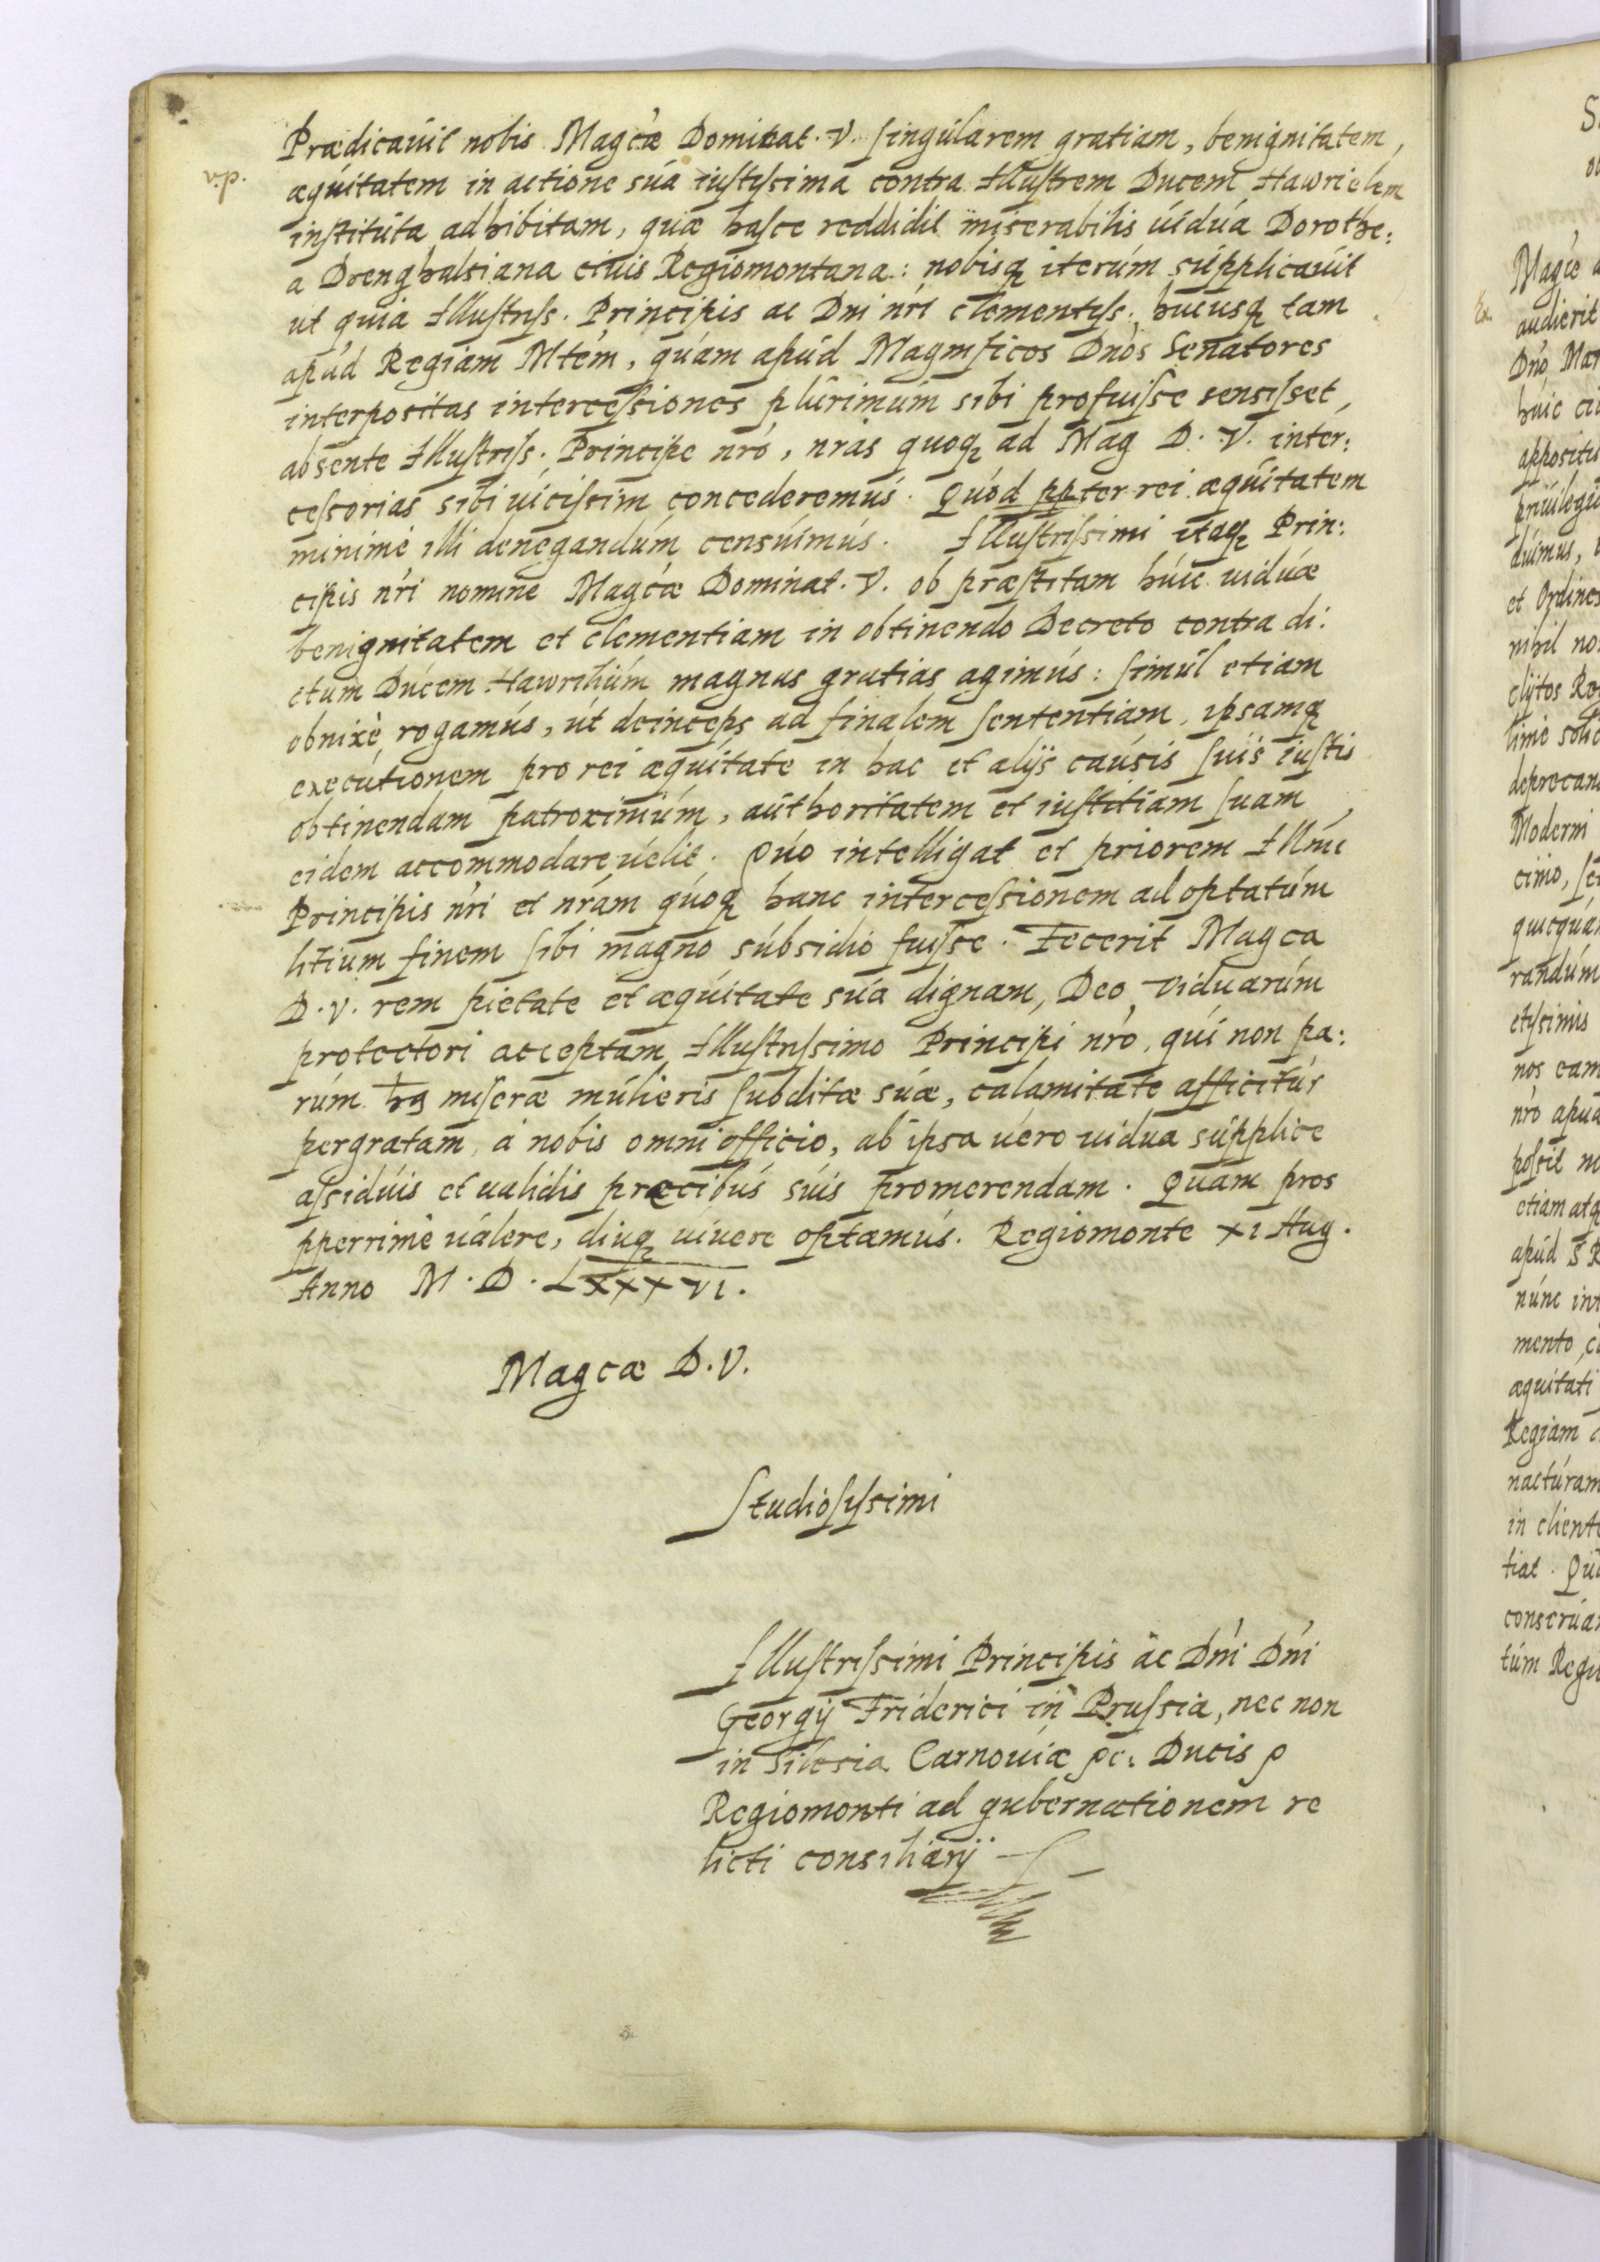 Prædicauit nobis Magcæ Dominat. V. singularem gratiam, benignitatem,
æquitatem in actione sua iustissima contra Illustrem Ducem Hawrielem
instituta adhibitam, quæ hasce reddidit miserabilis uidua Dorothe:
a Drenghalsiana ciuis Regiomontana: nobisq iterum supplicauit
ut quia Illustriss. Principis ac Dni nri clementiss. hucusq tam
apud Regiam Mtem, quam apud Magnificos Dnos Senatores
interpositas intercessiones plurimum sibi profuisse sensisset,
absente Illustriss. Principe nro, nras quoq ad Mag D. V. inter:
cessorias sibi uicissim concederemus. Quod ppter rei æquitatem
minimè illi denegandum censuimus. Illustrissimi itaq Prin:
cipis nri nomine Magcæ Dominat. V. ob præstitam huic uiduæ
benignitatem et clementiam in obtinendo Decreto contra di:
ctum Ducem Hawrilium magnas gratias agimus: simul etiam
obnixè rogamus, ut deinceps ad finalem sententiam, ipsamq
executionem pro rei æquitate in hac et alijs causis suis iustis
obtinendam patrocinium, authoritatem et iustitiam suam,
eidem accommodare uelit. Quo intelligat et priorem Illmi
Principis nri et nram quoq hanc intercessionem ad optatum
litium finem sibi magno subsidio fuisse. Fecerit Magca
D. V. rem pietate et æquitate sua dignam, Deo viduarum
protectori acceptam, Illustrissimo Principi nro, qui non pa:
rum miseræ mulieris subditæ suæ, calamitate afficitur
pergratam, à nobis omni officio, ab ipsa uero uidua supplice
assiduis et ualidis præcibus suis promerendam. Quam pros
pperrimè ualere, diuq uiuere optamus. Regiomonte XI Aug.
Anno M. D. LXXXVI.
Magcæ D. V.
Studiosissimi
Illustrissimi Principis ac Dni Dni
Georgij Friderici in Prussia, nec non
in Silesia Carnouiæ pc. Ducis p
Regiomonti ad gubernationem re
licti consiliarij
S
Magcæ
audierit
Dno Mar
huic ci
appositu
priuilegi
duimus,
et Ordines
nihil no
clytos Re
lime solic
deprecan
Moderni
cimo, se
quicqua
randum
ctissimis
nos cam
nro apud
possit m
etiam atq
apud S R
nunc int
mento, c
æquitati
Regiam
nacturam
in client
tiat. Qu
conserua
tum Regi